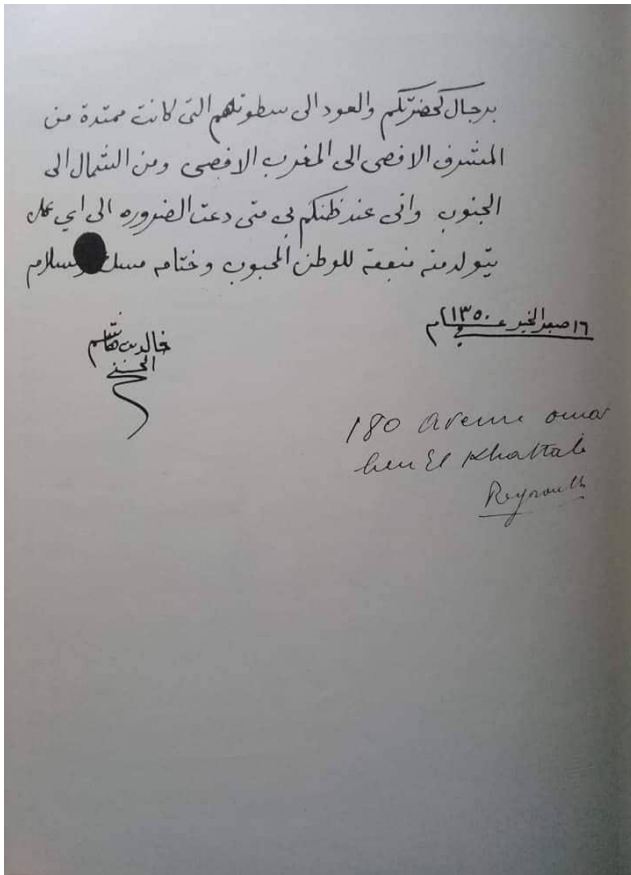 برجال كحضرتكم والعود الى سطوتهم التى كانت ممتدة من
المشرق الاقصى الى المغرب الاقصى ومن الشمال الى
الجنوب وانى عند ظنكم بى متى دعت الضروره الى اى عمل
يتولد منه منفعة للوطن المحبوب وختامه مسك وسلام
فى ١٦ صفر الخير عام ١٣٥٠
خالد بن هاشم
الحسنى
180 Avenue omar
ben El Khattab
Beyrouth